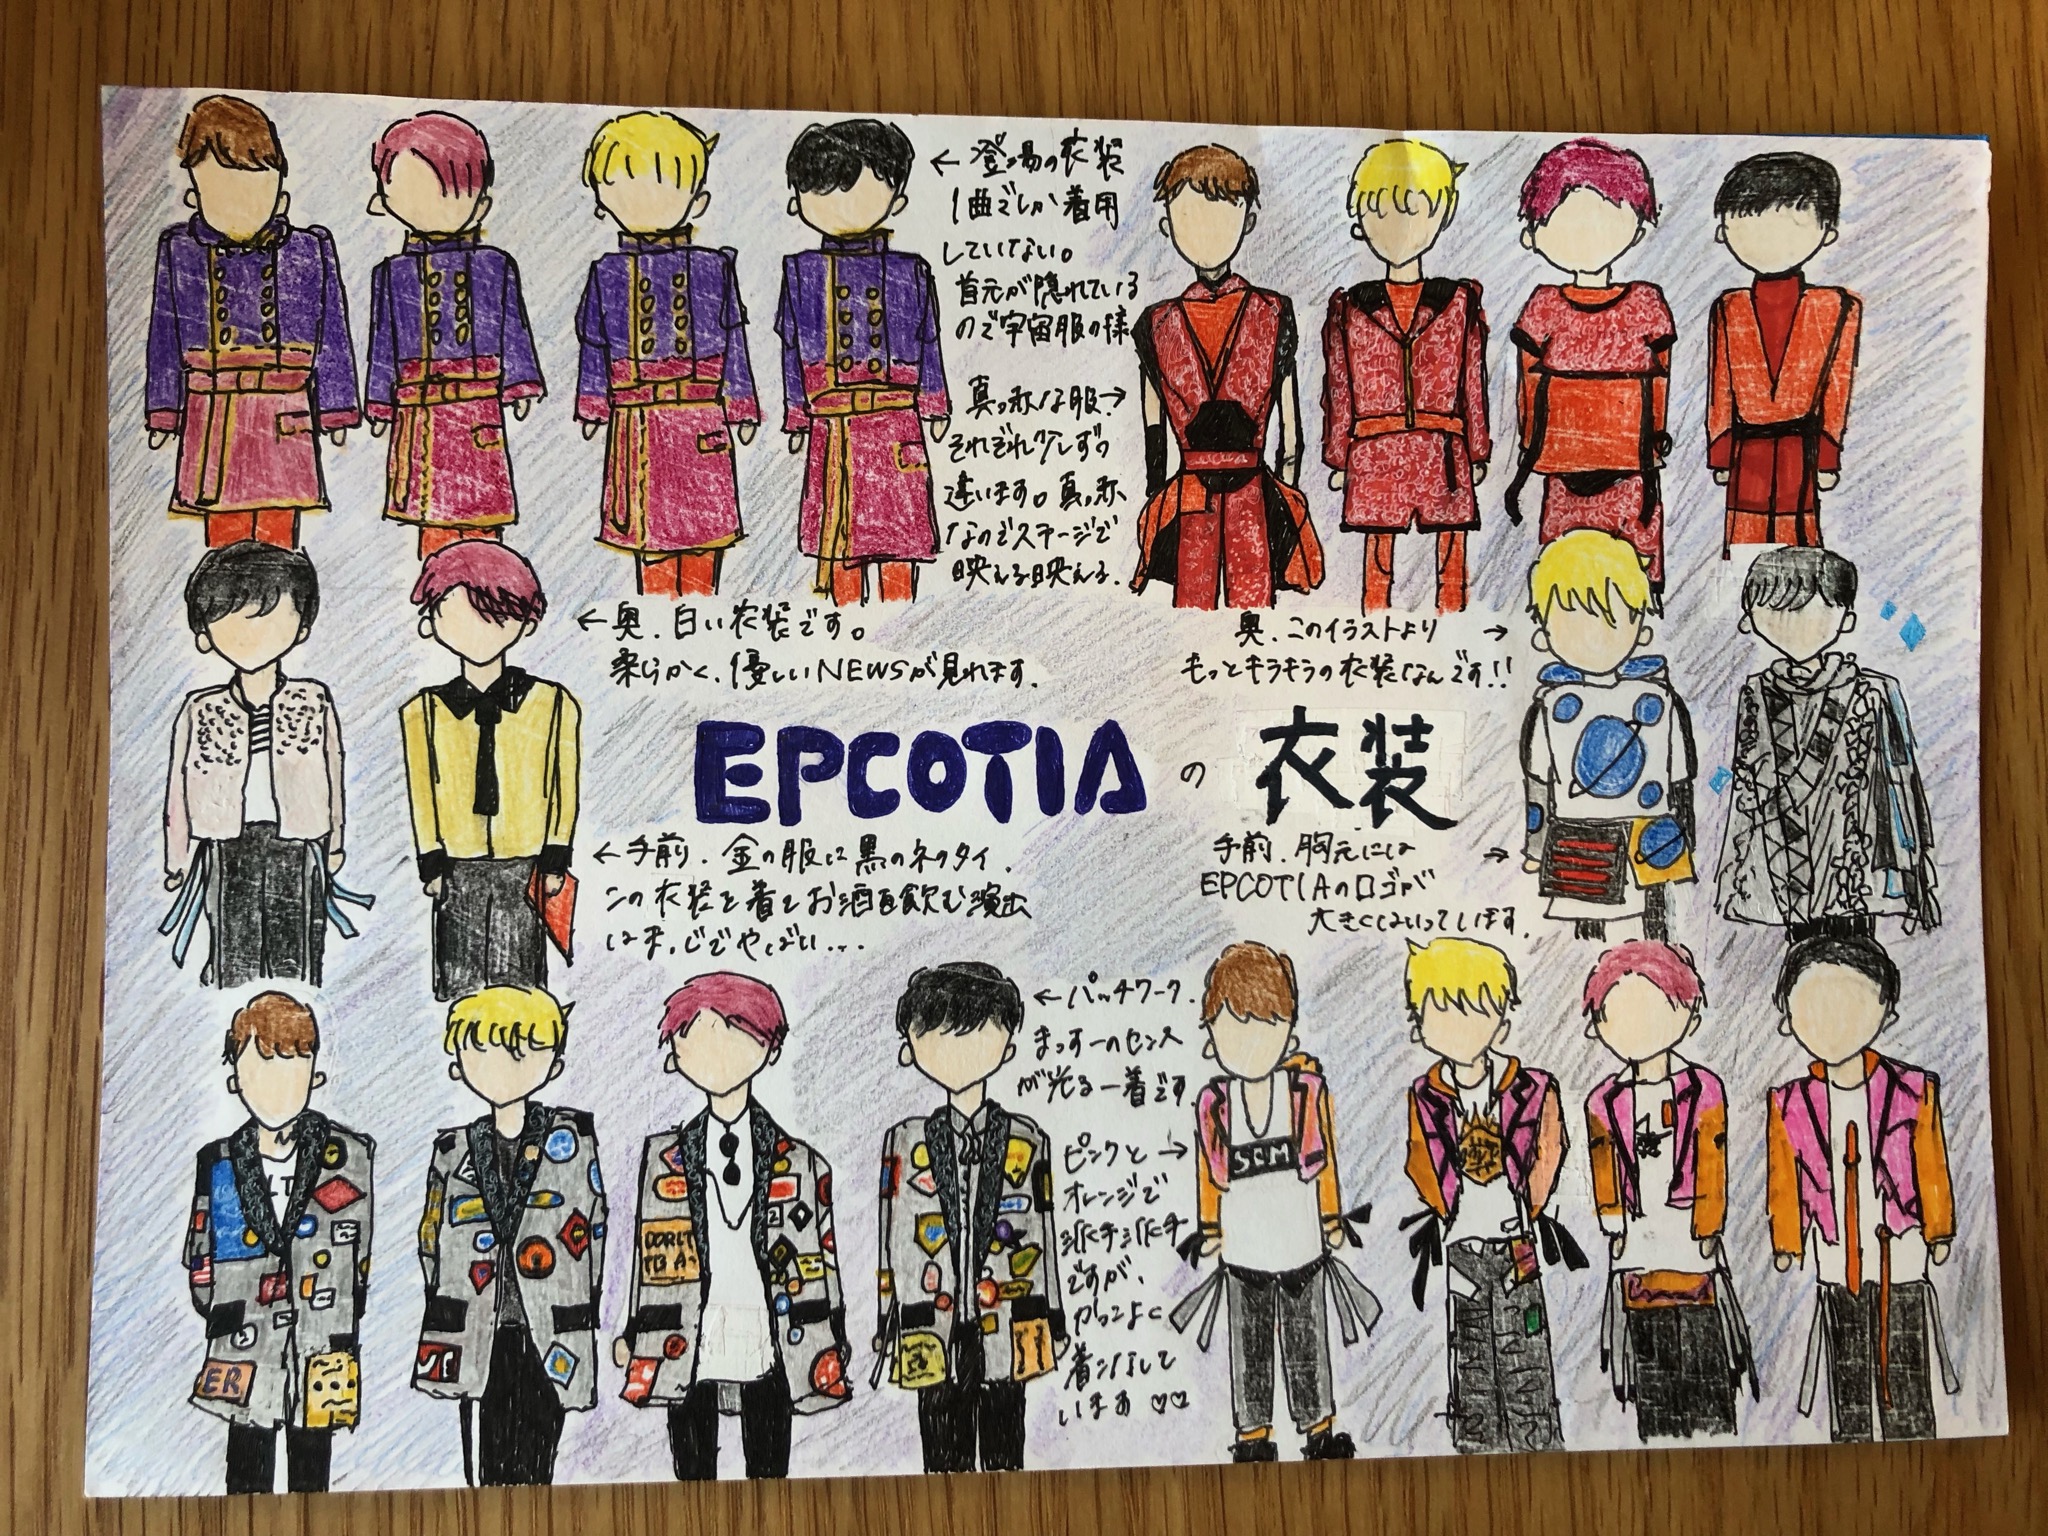 ← 登場の衣装
1曲でしか着用
していない。
首元が隠れている
ので宇宙服の様
真っ赤な服→
それぞれ少しずつ
違います。真っ赤
なのでステージで
映える映える。
← 奥.白い衣装です。
柔らかく、優しいNEWSが見れます.
奥.このイラストより →
もっとキラキラの衣装なんです!!
EPCOTIA の 衣装
← 手前.金の服に黒のネクタイ.
この衣装を着てお酒を飲む演出
はまじでやばい...
手前.胸元には →
EPCOTIAのロゴが
大きくはいっています.
← パッチワーク.
まっすーのセンス
が光る一着です.
ピンクと →
オレンジで
派手派手
ですが、
かっこよく
着こなして
いまあ ♡♡
DON'T
ER
SCM